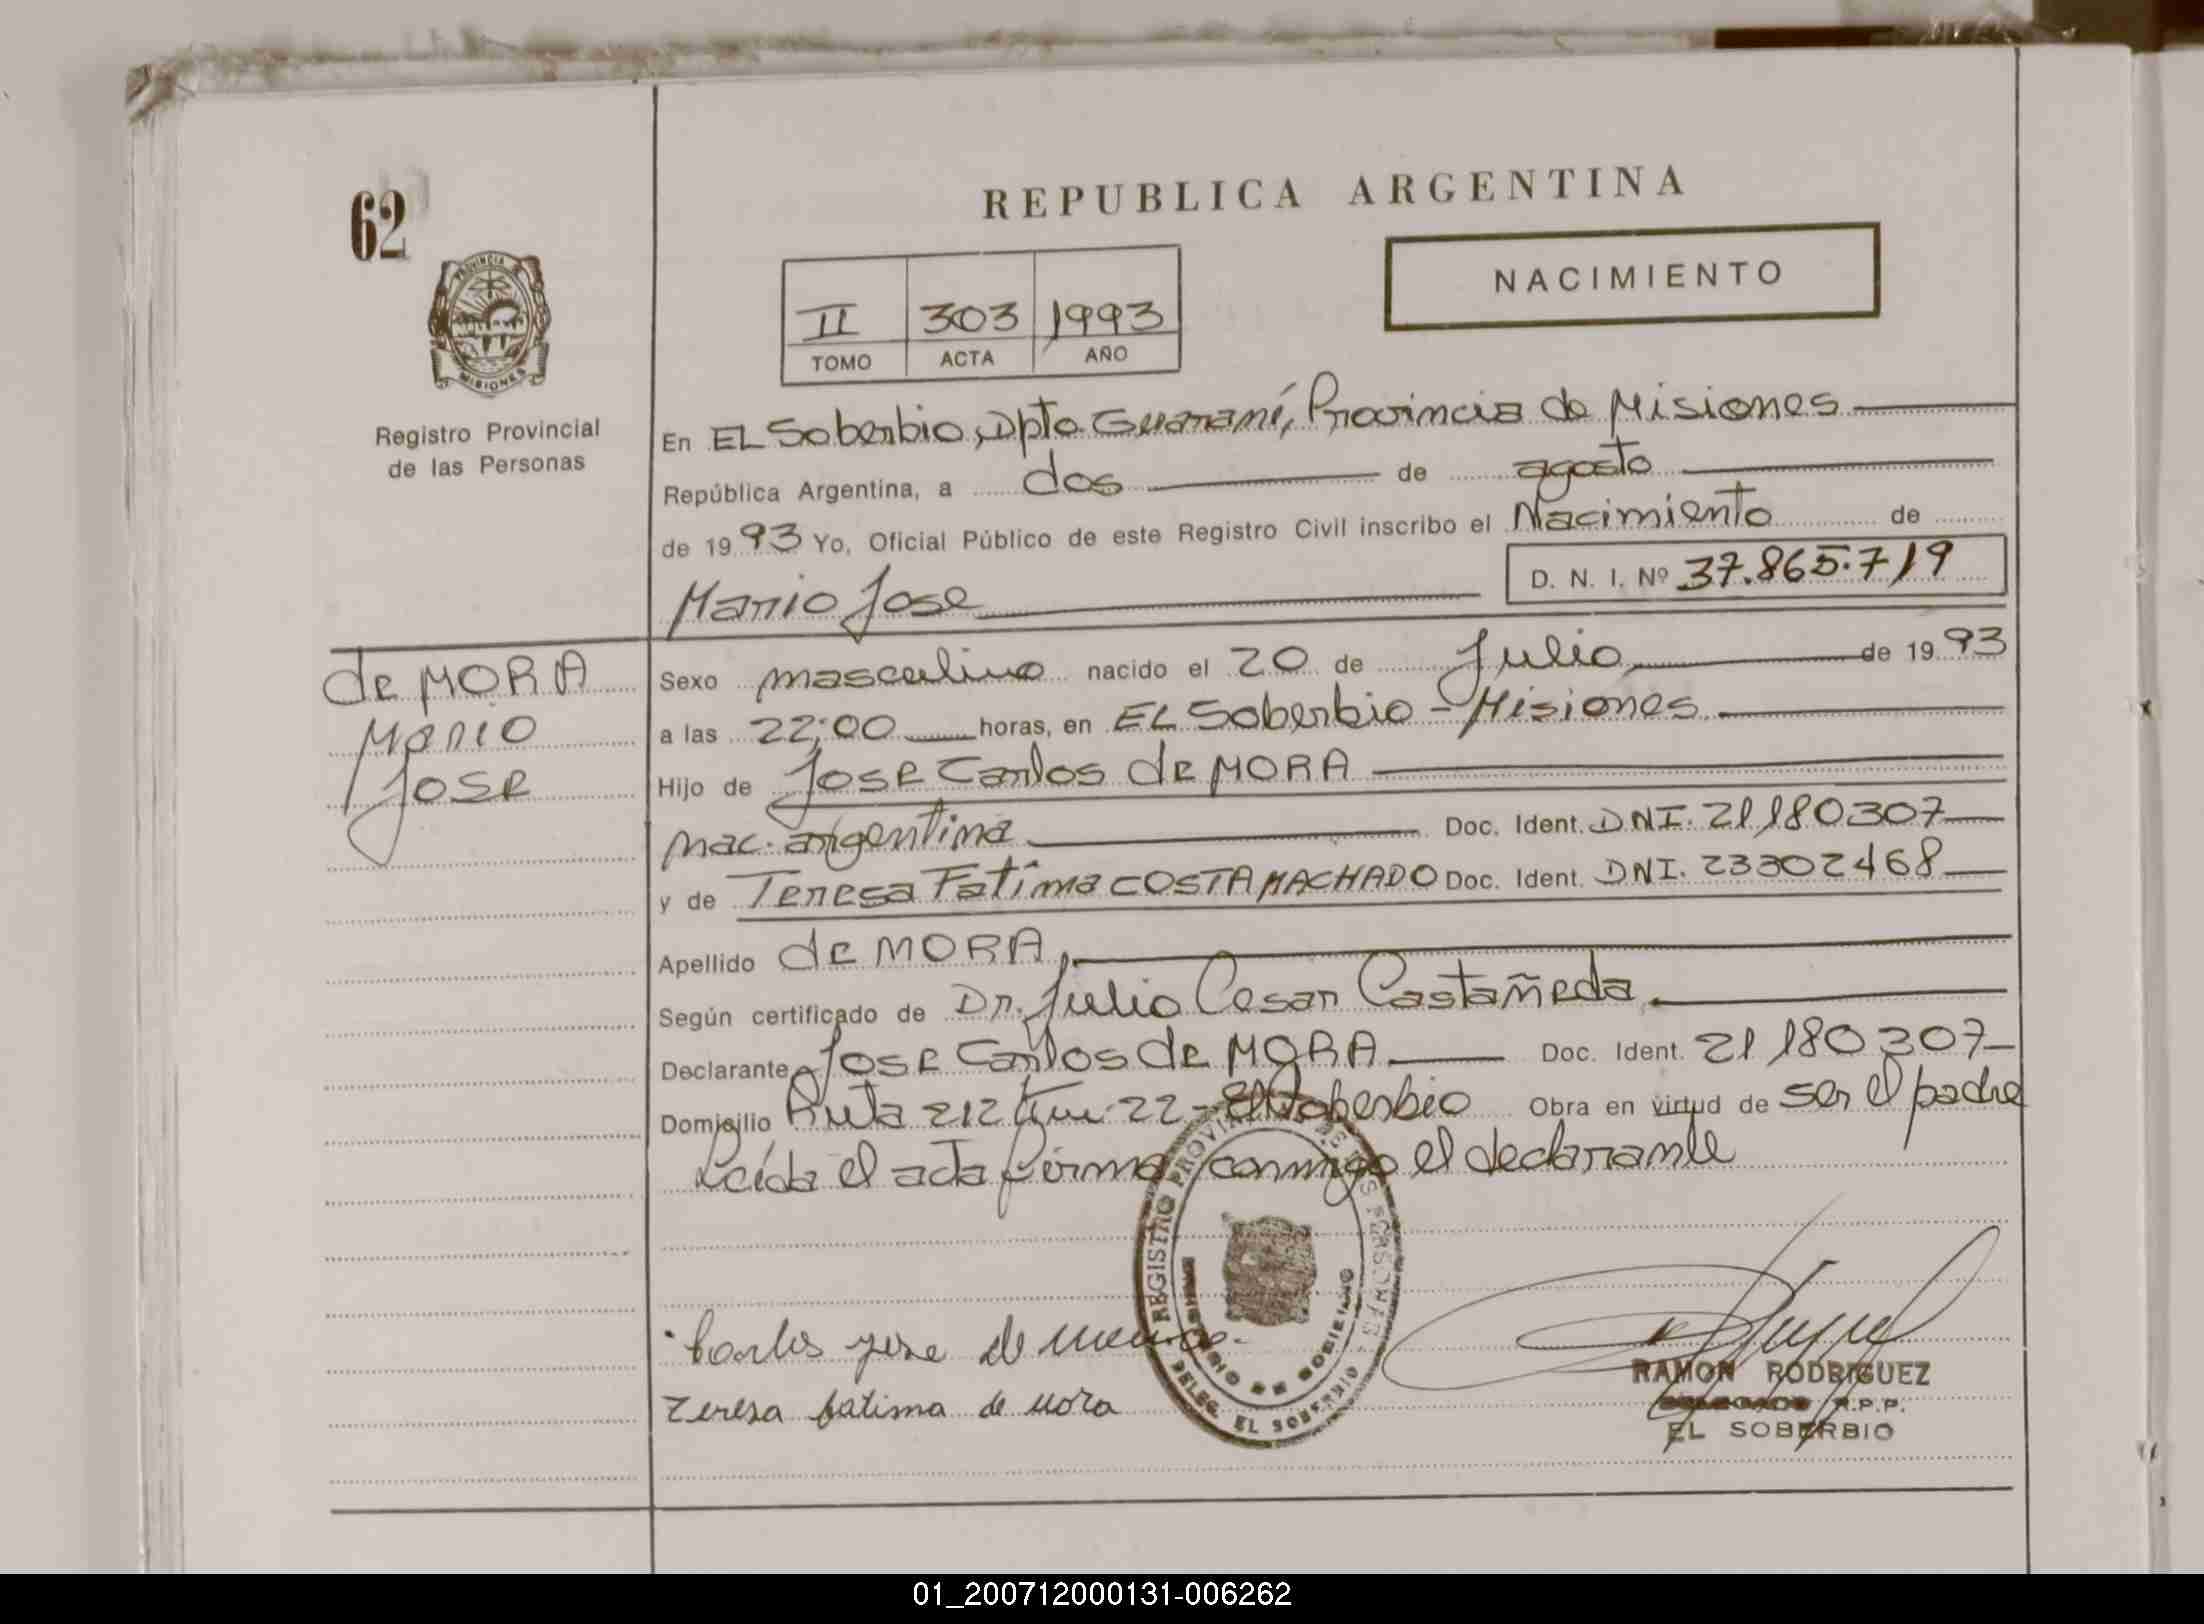 62
PROVINCIA DE
MISIONES
Registro Provincial
de las Personas
REPUBLICA ARGENTINA
NACIMIENTO
II 303 1993
TOMO ACTA AÑO
En EL Soberbio, Dpto Guaraní, Provincia de Misiones
República Argentina, a dos de agosto
de 19 93 Yo, Oficial Público de este Registro Civil inscribo el Nacimiento de
Mario Jose D. N. I. Nº 37.865.719
de MORA
Mario
Jose
Sexo masculino nacido el 20 de Julio de 19 93
a las 22:00 horas, en EL Soberbio - Misiones
Hijo de Jose Carlos de MORA
nac. argentina Doc. Ident. DNI. 21180307
y de Teresa Fatima COSTA MACHADO Doc. Ident. DNI. 23302468
Apellido de MORA
Según certificado de Dr. Julio Cesar Castañeda
Declarante Jose Carlos de MORA Doc. Ident. 21180307
Domicilio Ruta 212 Km 22 - El Soberbio Obra en virtud de ser el padre
Leída el acta firma conmigo el declarante
REGISTRO PROVINCIAL DE LAS PERSONAS
MINISTERIO DE GOBIERNO
DELEG. EL SOBERBIO
Carlos jose de
Teresa fatima de mora
RAMON RODRIGUEZ
DELEGADO R.P.P.
EL SOBERBIO
01_200712000131-006262